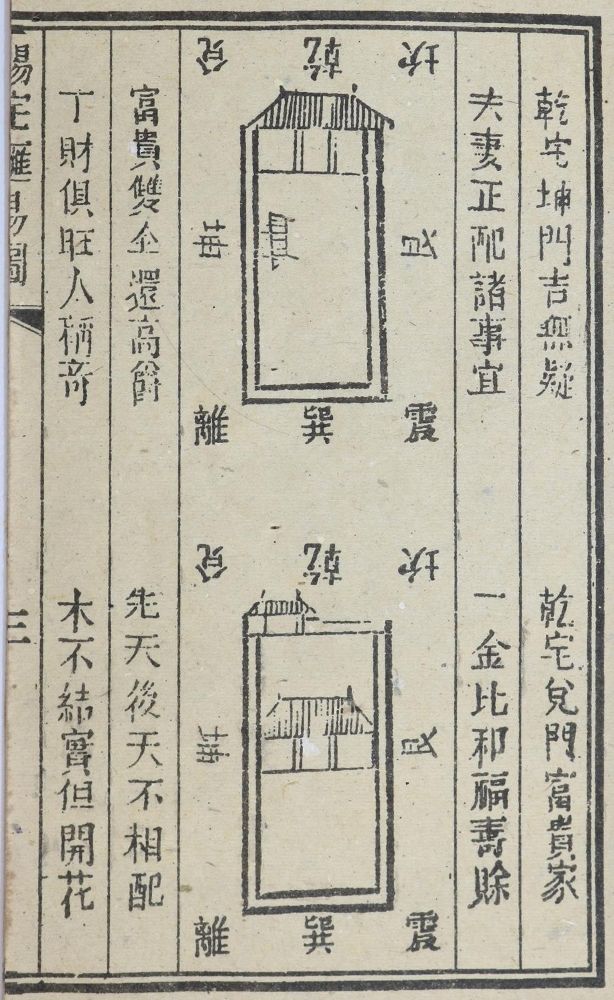 乾宅坤門吉無疑
夫妻正配諸事宜
坎 乾 兌
艮 坤
震 巽 離
富貴雙全還高爵
丁財俱旺人稱奇
乾宅兌門富貴家
一金比和福壽賒
坎 乾 兌
艮 坤
震 巽 離
先天後天不相配
木不結實但開花
易圖
三